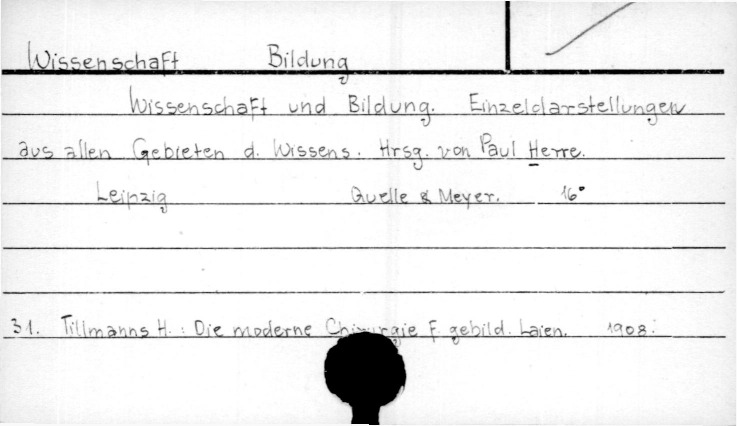 Wissenschaft Bildung
Wissenschaft und Bildung. Einzeldarstellungen
aus allen Gebieten d. Wissens. Hrsg. von Paul Herre.
Leipzig Quelle & Meyer. 16°
31. Tillmanns H.: Die moderne Chirurgie f. gebild. Laien. 1908.